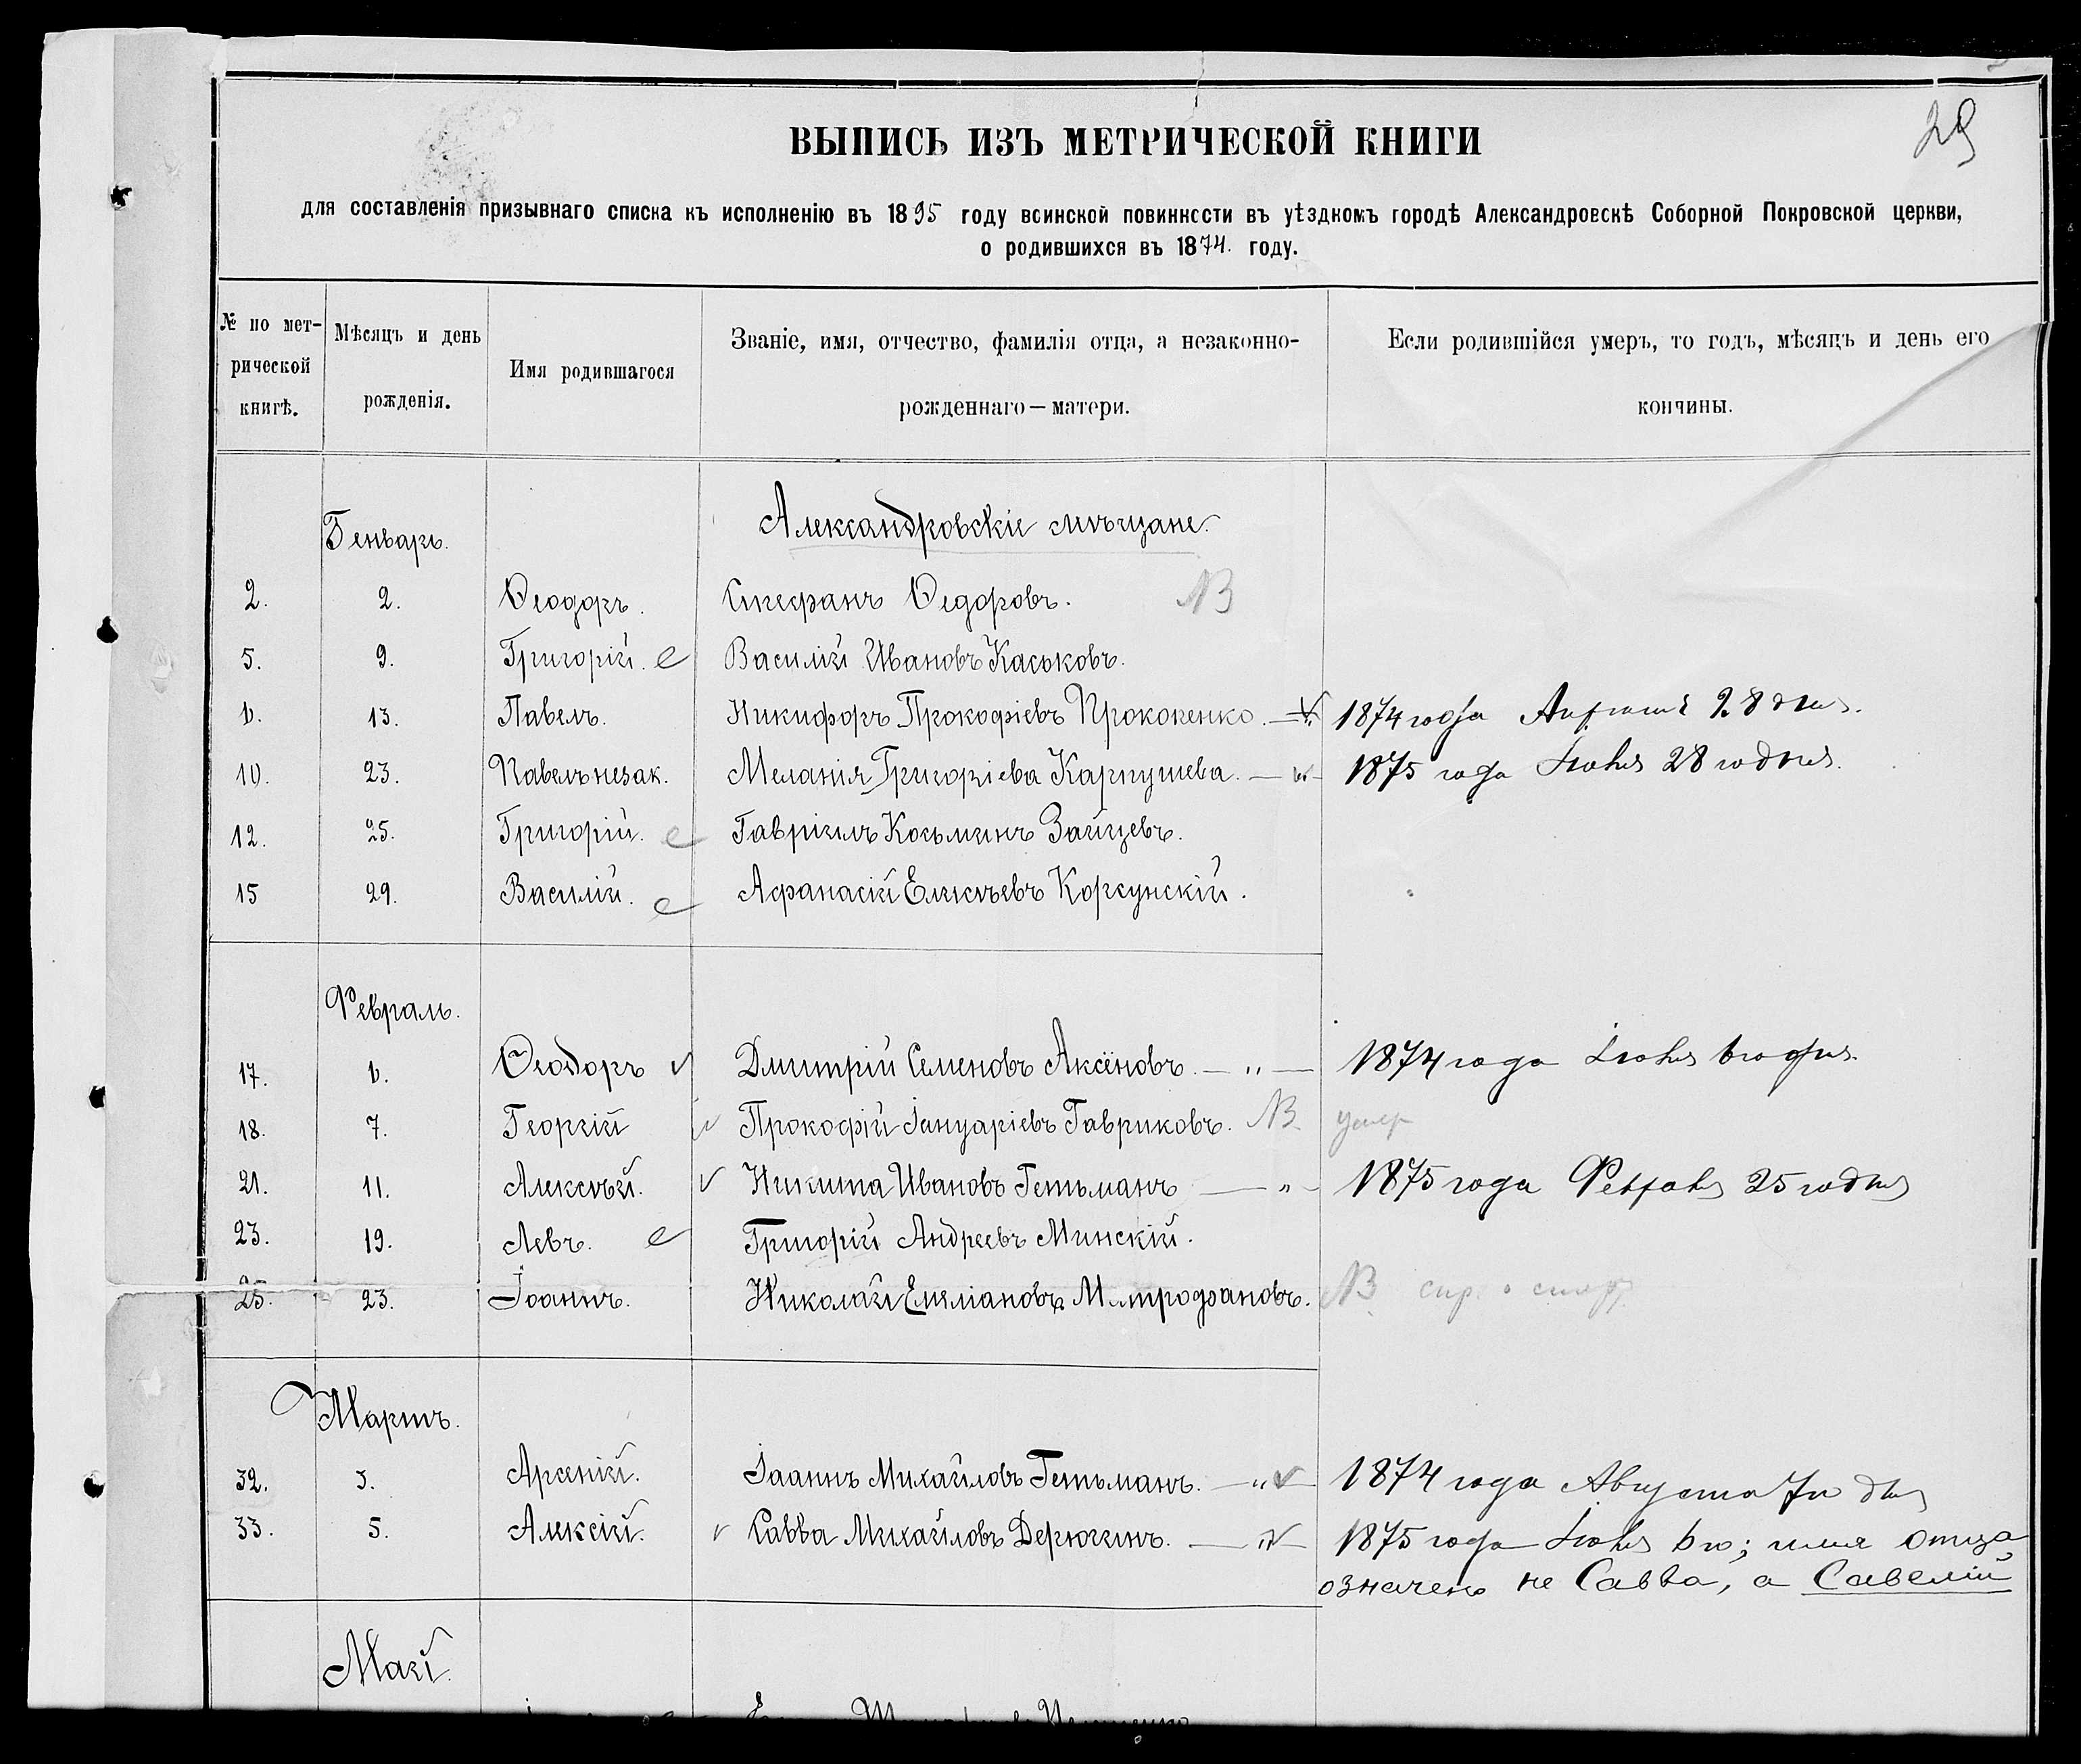 29
ВЫПИСЬ ИЗЪ МЕТРИЧЕСКОЙ КНИГИ
для составленія призывнаго списка къ исполненію въ 1895 году воинской повинности въ уѣздномъ городѣ Александровскѣ Соборной Покровской церкви,
о родившихся въ 1874. году.
№ по мет-
рической
книгѣ.
Мѣсяцъ и день
рожденія.
Имя родившагося
Званіе, имя, отчество, фамилія отца, а незаконно-
рожденнаго — матери.
Если родившійся умеръ, то годъ, мѣсяцъ и день его
кончины.
Генварь. Александровскіе мѣщане.
2. 2. Ѳеодоръ. Стефанъ Ѳедоровъ. NB
5. 9. Григорій. Василій Ивановъ Каськовъ.
6. 13. Павелъ. Никифоръ Прокофіевъ Прокопенко. — 1874 года Апрѣля 28 дня.
10. 23. Павелъ незак. Меланія Григоріева Карпушева. — 1875 года Іюня 28 го дня.
12. 25. Григорій. Гавріилъ Козьминъ Зайцевъ.
15 29. Василій. Афанасій Елисѣевъ Корсунскій.
Февраль.
17. 6. Ѳеодоръ Дмитрій Семеновъ Аксёновъ. — „ — 1874 года Іюня 6 го дня.
18. 7. Георгій Прокофій Іануаріевъ Гавриковъ. NB умер
21. 11. Алексѣй. Никита Ивановъ Гетьманъ — „ - 1875 года Февраля 25 го дня
23. 19. Левъ. Григорій Андреевъ Минскій.
25. 23. Іоаннъ. Николай Емеліановъ Митрофановъ. NB
Мартъ.
32. 3. Арсеній. Іоаннъ Михайловъ Гетьманъ. — „ — 1874 года Августа 7 го дня
33. 5. Алексій. Савва Михайловъ Дерюгинъ. — „ — 1875 года Іюня 6 го; имя отца
означено не Савва, а Савелій
Май.